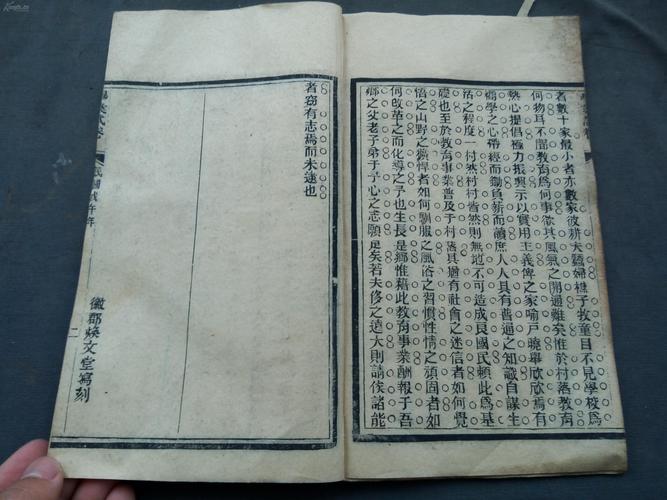 者數十家最小者亦數家彼耕夫蠶婦樵子牧童目不見學校爲
何物耳不聞教育爲何事欲其風氣之開通難矣惟於村落教育
熱心提倡極力振興示以實用主義俾之家喻戶曉舉欣欣焉有
嚮學之心帶經而鋤負薪而讀庶人人具有普通之知識自謀生
活之程度一村然村村皆然則無地不可造成良國民賴此爲基
礎也至於教育事業普及于村落其猶有社會之迷信者如何覺
悟之山野之獷悍者如何馴服之風俗之習慣性情之頑固者如
何改革之而化導之予也生長是鄉惟藉此教育事業酬報于吾
鄉之父老子弟于予心之志願足矣若夫修之遠大則請俟諸能
者竊有志焉而未逮也
民國
年
二
徽郡煥文堂寫刻